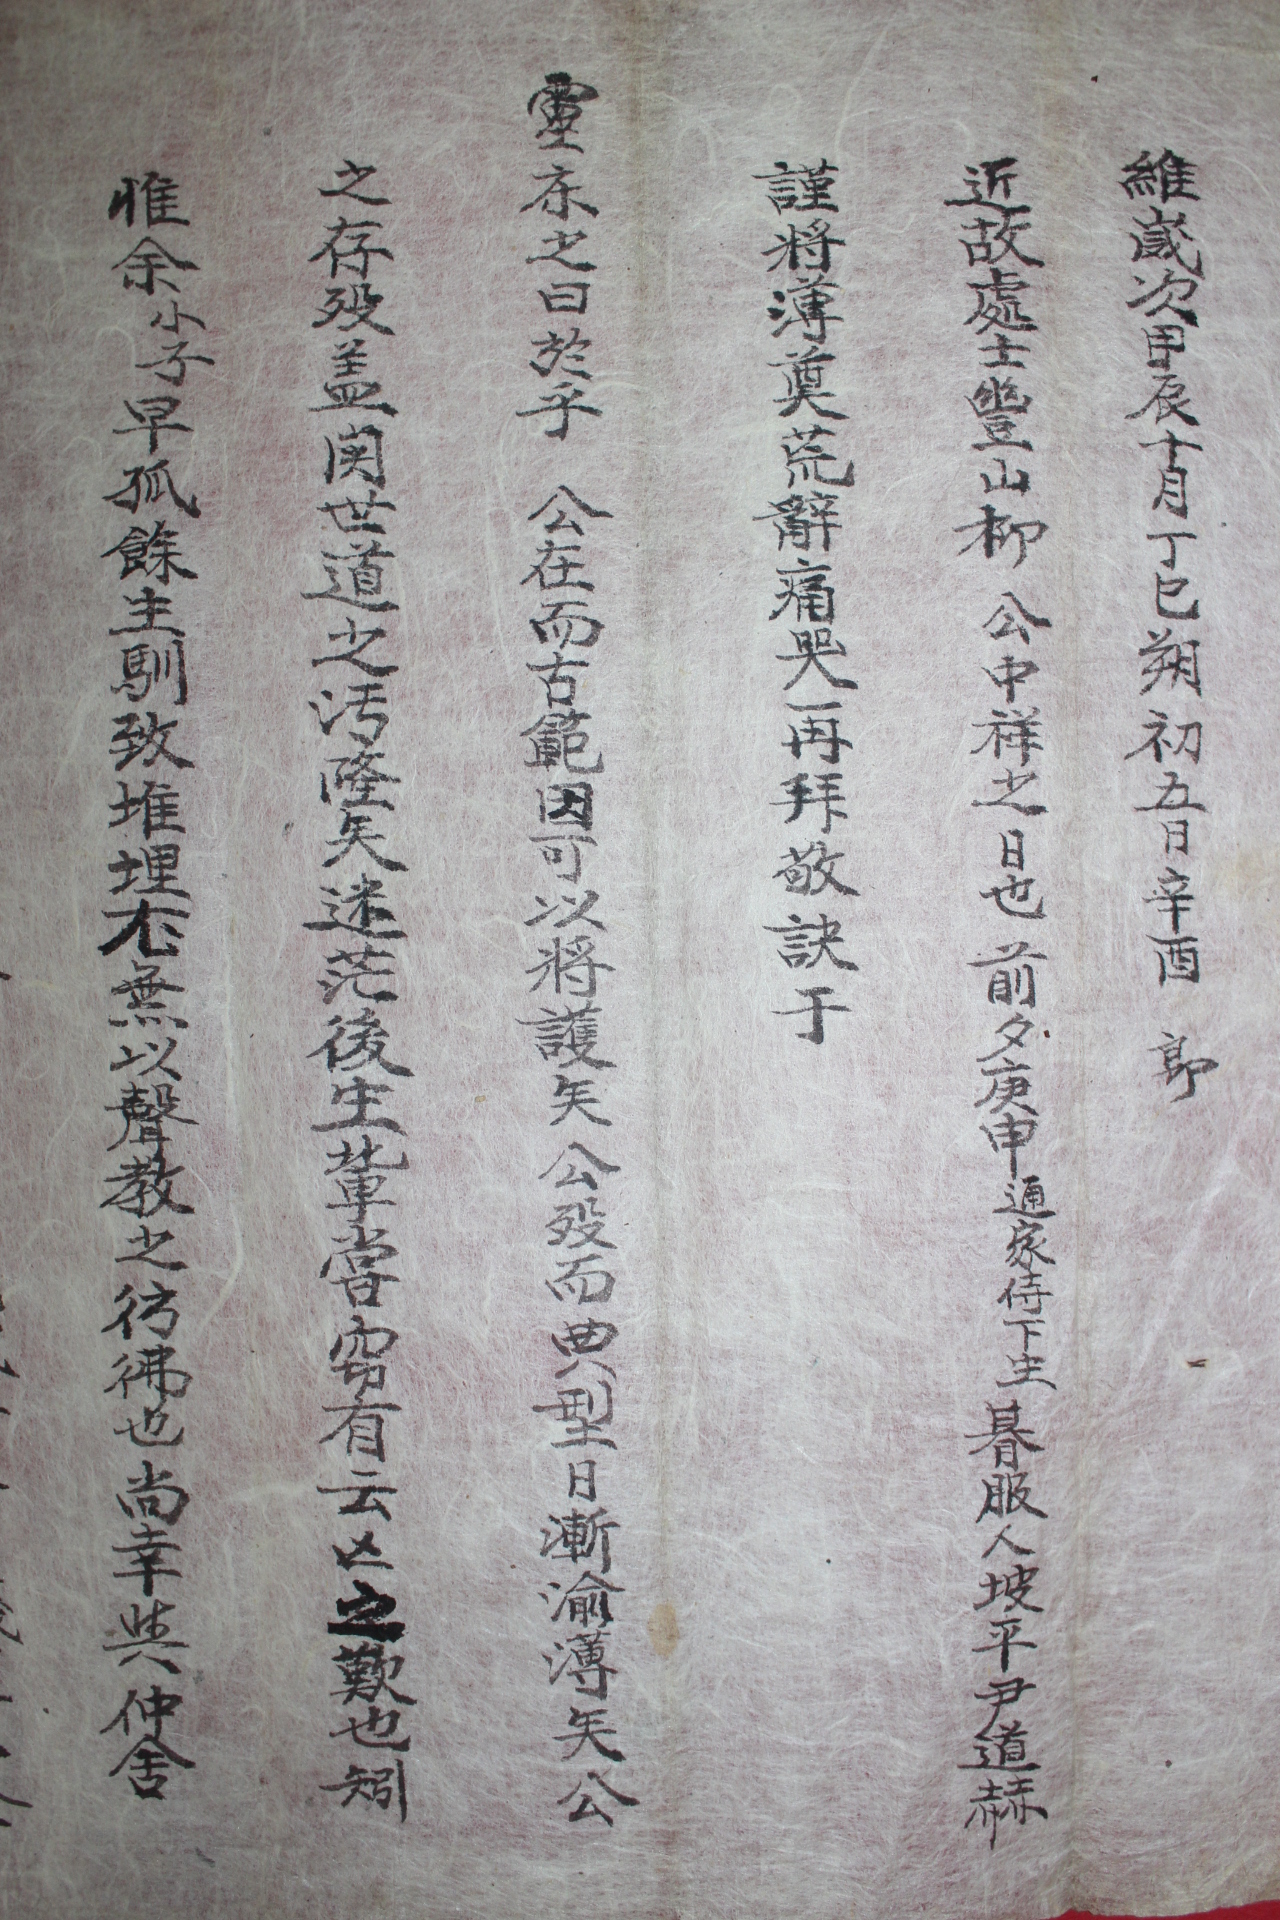 維歲次甲辰十月丁巳朔初五日辛酉 即
近故處士豐山柳 公中祥之日也 前夕庚申通家侍下生朞服人坡平尹道赫
謹將薄奠荒辭痛哭再拜敬訣于
靈床之曰於乎 公在而古範因可以將護矣公歿而典型日漸渝薄矣公
之存歿盖関世道之汚隆矣迷茫後生輩嘗窃有云亡之歎也矧
惟余小子早孤餘生馴致堆埋不無以聲教之彷彿也尚幸與仲舍